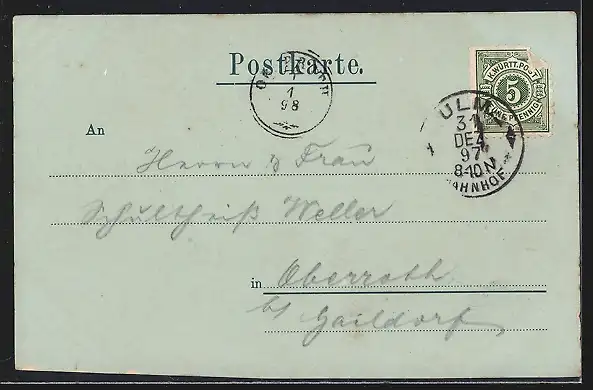 Postkarte.
K.WÜRTT.POST
5
FÜNF PFENNIG
ULM
31
DEZ
97
8-10 N
BAHNHOF
1
98
An
Herrn & Frau
Schultheiß Weller
in Oberroth
b/ Gaildorf